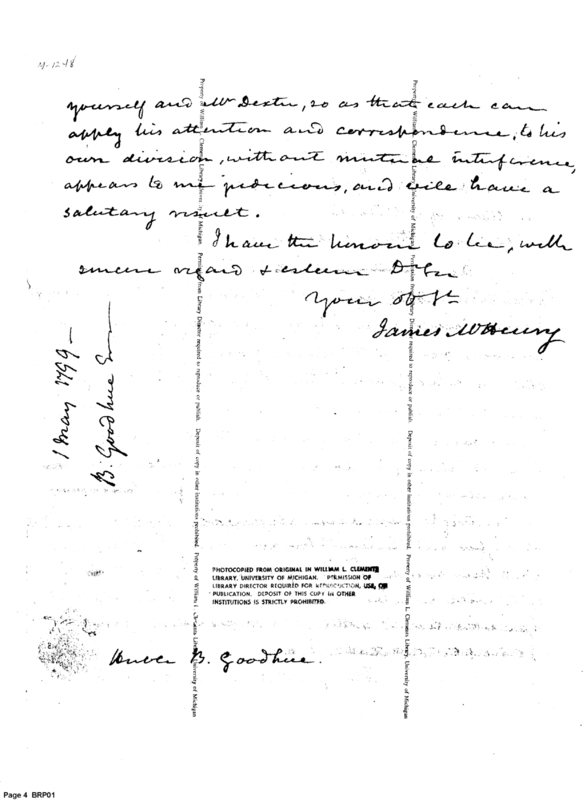 yourself and Mr Dexter, so as that each can
apply his attention and correspondence, to his
own division, without mutual interference,
appears to me judicious, and will have a
salutary result.
I have the honour to be, with
sincere regard & esteem Dr Sir
Your ob St
James McHenry
1 May 1799 —
B. Goodhue
PHOTOCOPIED FROM ORIGINAL IN WILLIAM L. CLEMENTS
LIBRARY, UNIVERSITY OF MICHIGAN. PERMISSION OF
LIBRARY DIRECTOR REQUIRED FOR REPRODUCTION, USE, OR
PUBLICATION. DEPOSIT OF THIS COPY IN OTHER
INSTITUTIONS IS STRICTLY PROHIBITED.
B. Goodhue.
Property of William L. Clements Library, University of Michigan. Permission from Library Director required to reproduce or publish. Deposit of copy in other institutions prohibited. Property of William L. Clements Library, University of Michigan
Property of William L. Clements Library, University of Michigan. Permission from Library Director required to reproduce or publish. Deposit of copy in other institutions prohibited. Property of William L. Clements Library, University of Michigan
Page 4 BRP01